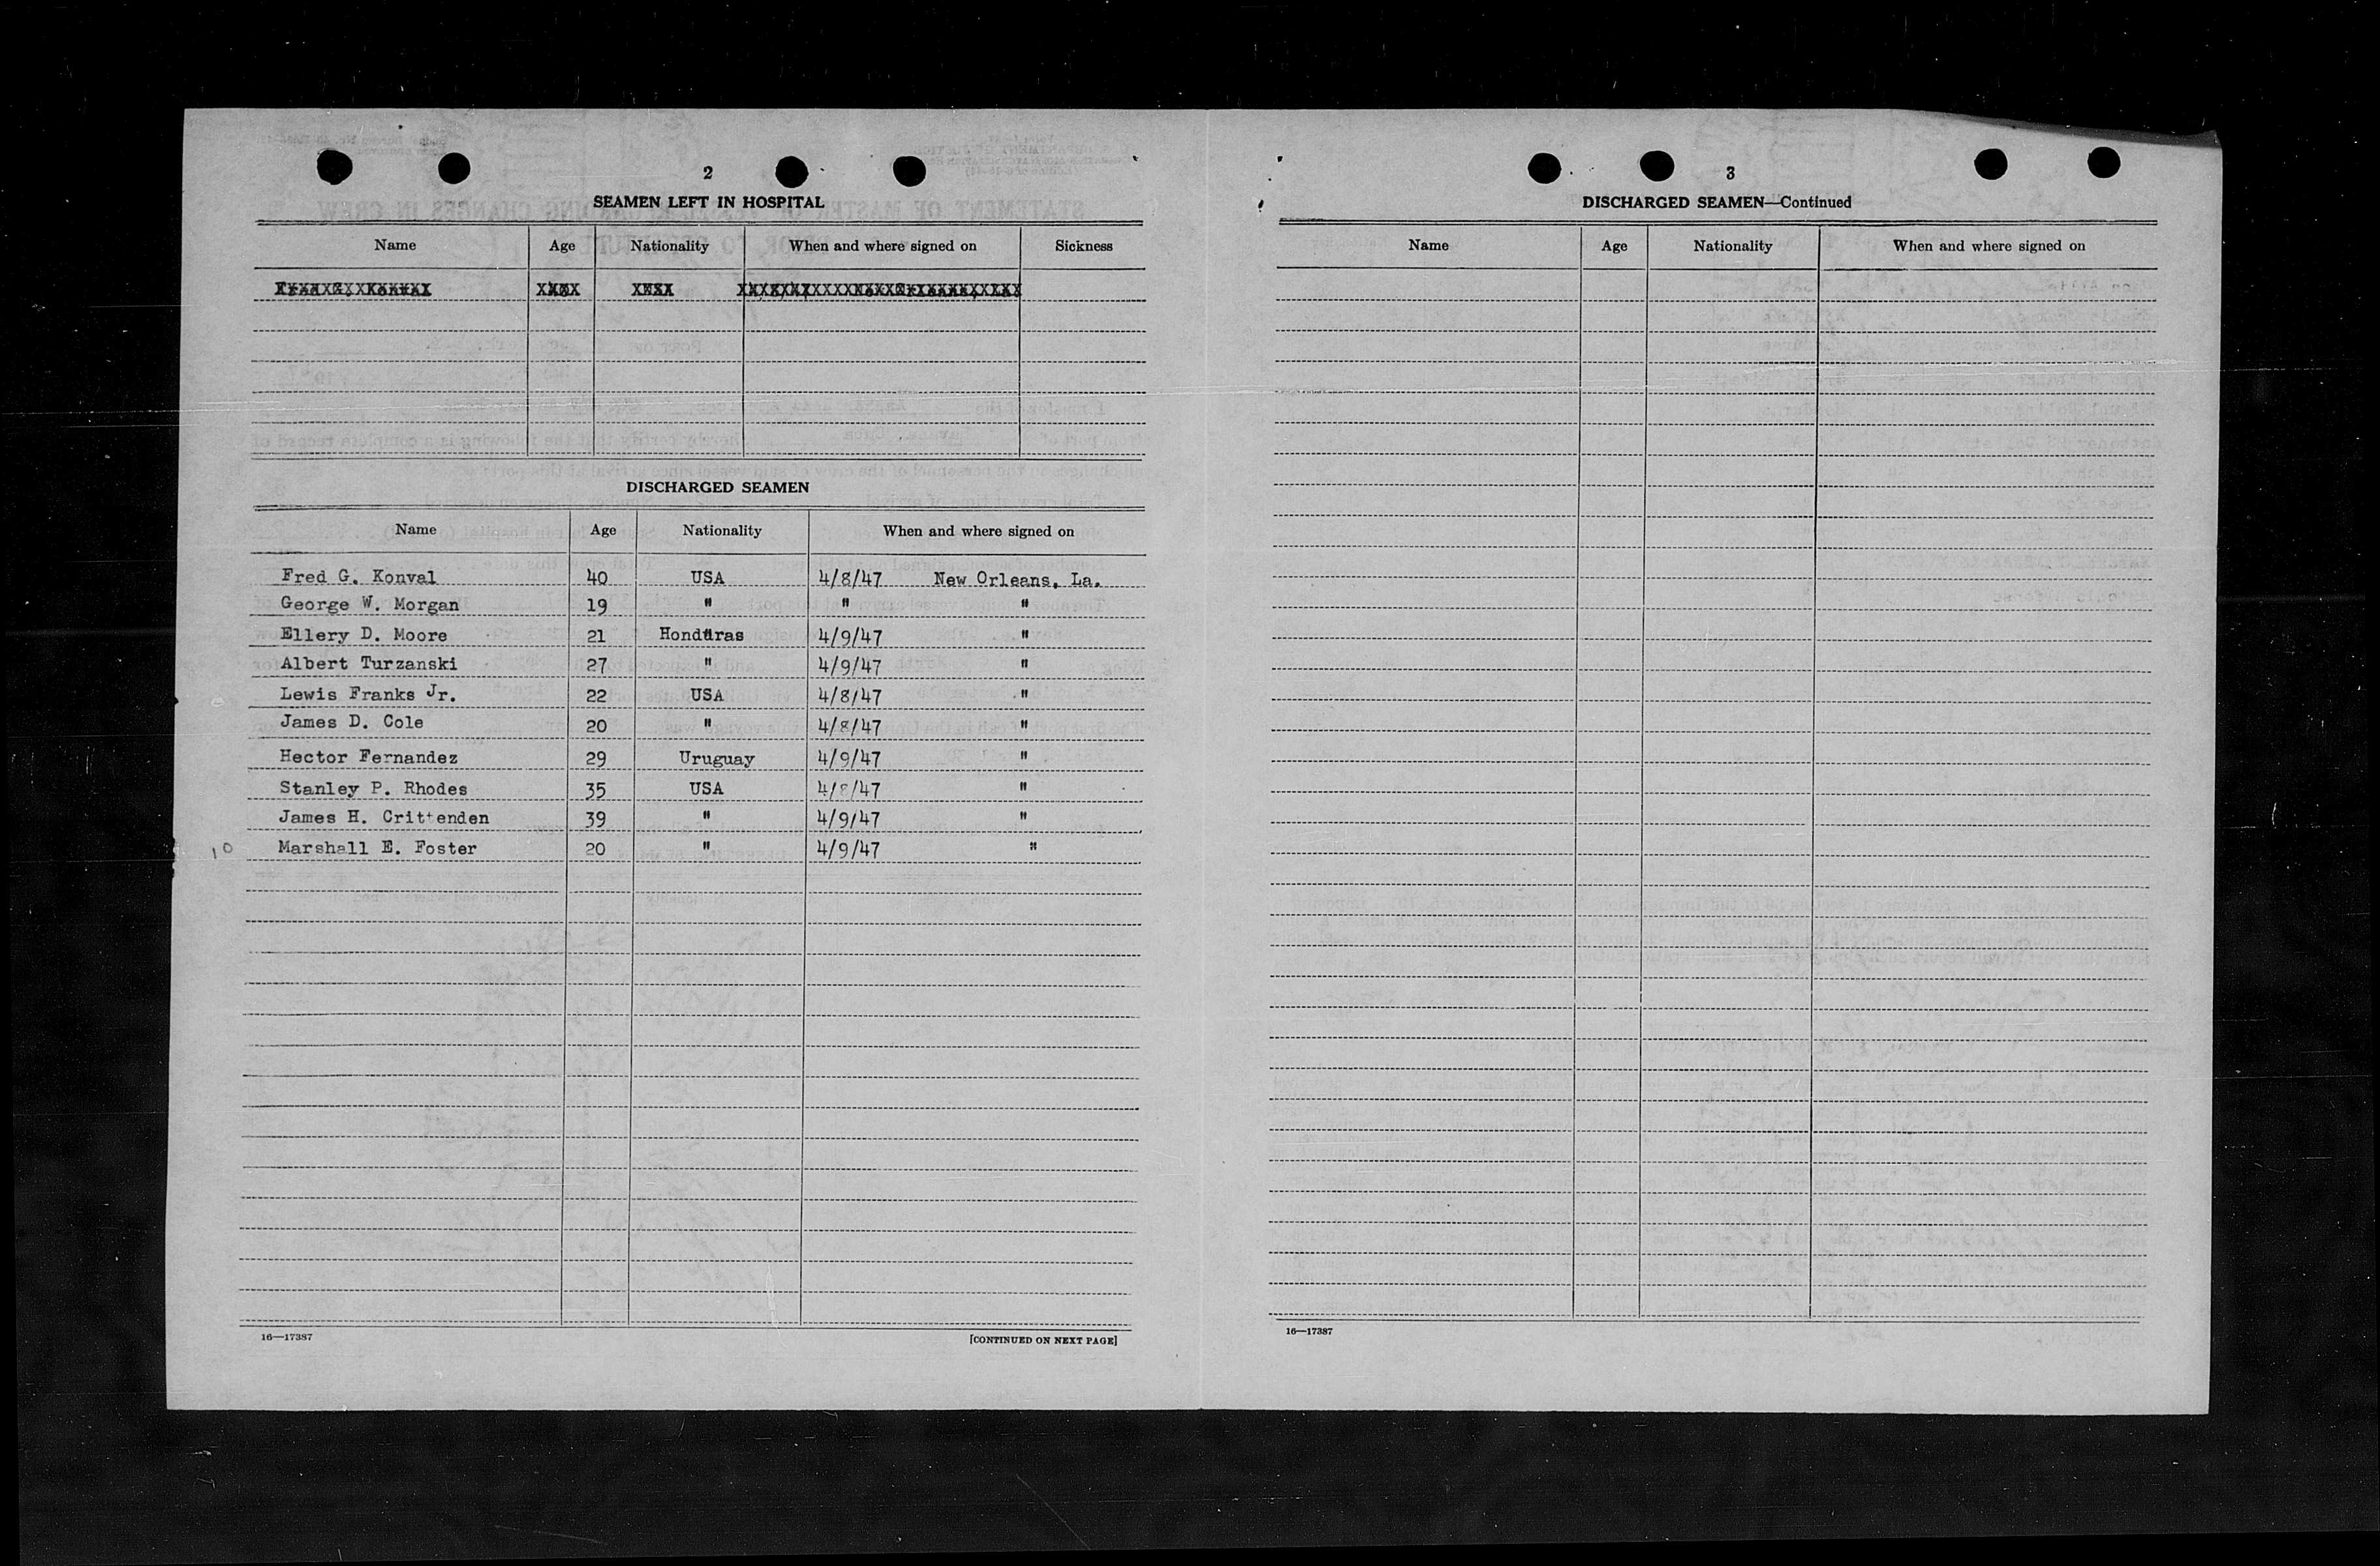 2
SEAMEN LEFT IN HOSPITAL
Name Age Nationality When and where signed on Sickness
DISCHARGED SEAMEN
Name Age Nationality When and where signed on
Fred G. Konval 40 USA 4/8/47 New Orleans, La.
George W. Morgan 19 " " "
Ellery D. Moore 21 Honduras 4/9/47 "
Albert Turzanski 27 " 4/9/47 "
Lewis Franks Jr. 22 USA 4/8/47 "
James D. Cole 20 " 4/8/47 "
Hector Fernandez 29 Uruguay 4/9/47 "
Stanley P. Rhodes 35 USA 4/8/47 "
James H. Crittenden 39 " 4/9/47 "
10 Marshall E. Foster 20 " 4/9/47 "
16—17387 [CONTINUED ON NEXT PAGE]
3
DISCHARGED SEAMEN—Continued
Name Age Nationality When and where signed on
16—17387